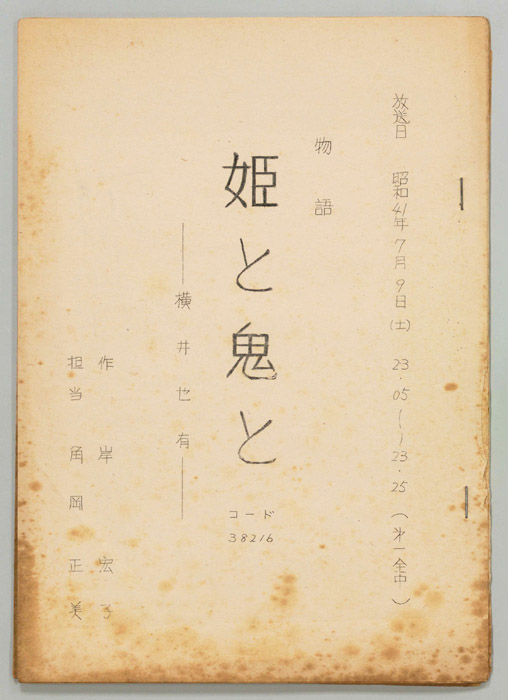 放送日 昭和41年7月9日(土) 23.05〜23.25(㐧一全中)
物語
姫と鬼と
コード
38216
―横井也有―
作 岸 宏子
担当 角岡正美